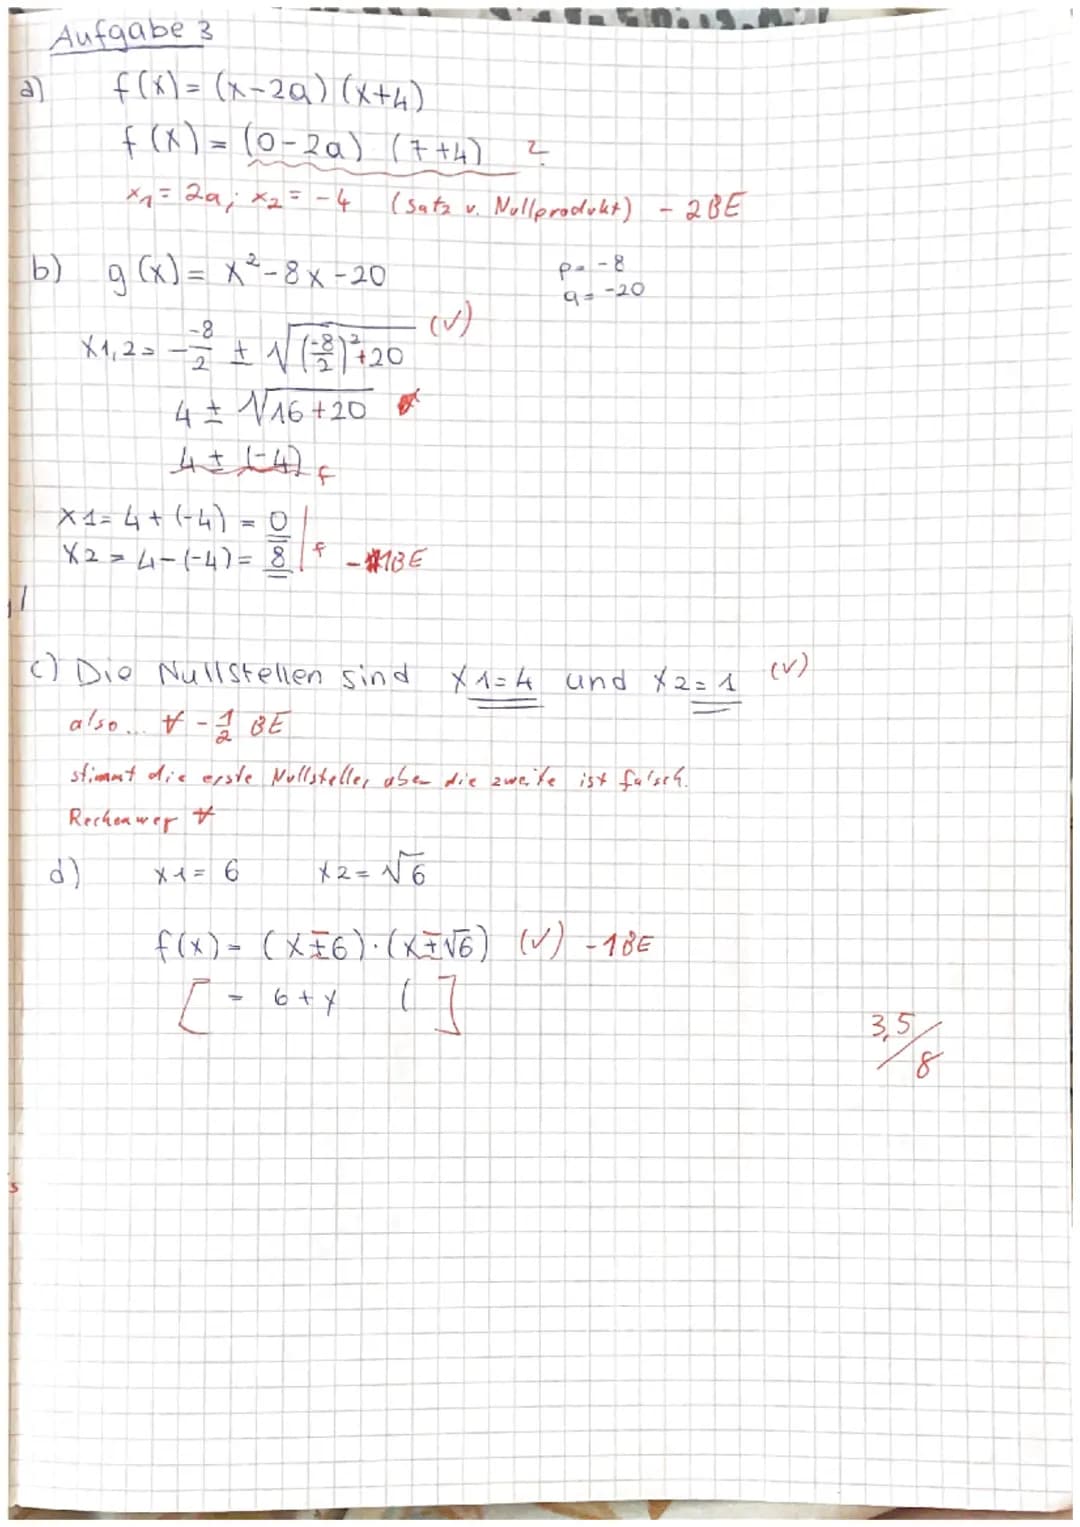 Aufgabe 3
a) f(x) = (x-2a) (x+4)
f(x) = (0-2a) (7+4) ?
x1 = 2a; x2 = -4 (Satz v. Nullprodukt) - 2BE
b) g(x) = x²-8x-20
p = -8
q = -20
x1,2 = - -8/2 ± √((-8/2)²+20) (√)
4 ± √16+20
4 ± (-4) f
x1 = 4+(-4) = 0
x2 = 4-(-4) = 8 f - 1BE
c) Die Nullstellen sind x1=4 und x2=1 (√)
also... ∀ - 1/2 BE
stimmt die erste Nullstelle, aber die zweite ist falsch.
Rechenweg ∀
d) x1 = 6 x2 = √6
f(x) = (x∓6)·(x∓√6) (√) -1BE
[ = 6+x ( ]
3,5/8